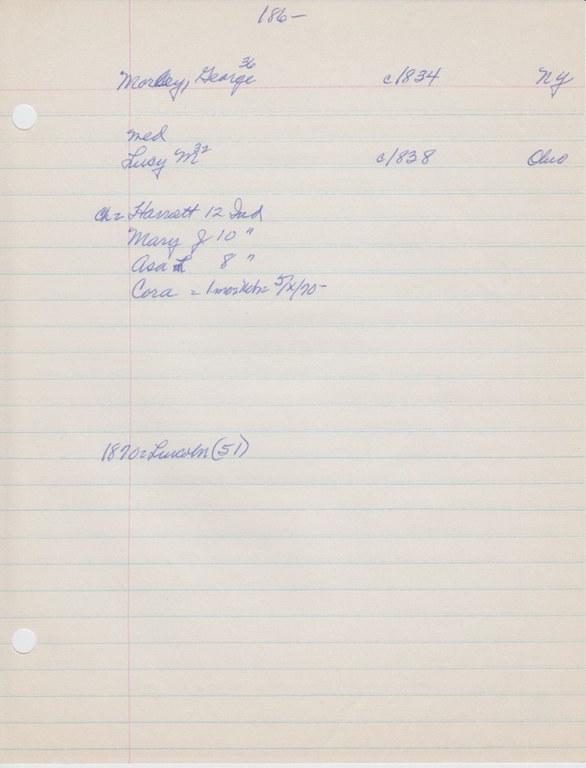 186-
Morley, George 36 c/1834 NY
med
Lucy M 32 c/1838 Ohio
ch = Harratt 12 Ind
Mary J 10 "
Asa 8 "
Cora = 1 mo 5/x/70-
1870 = Lincoln (51)